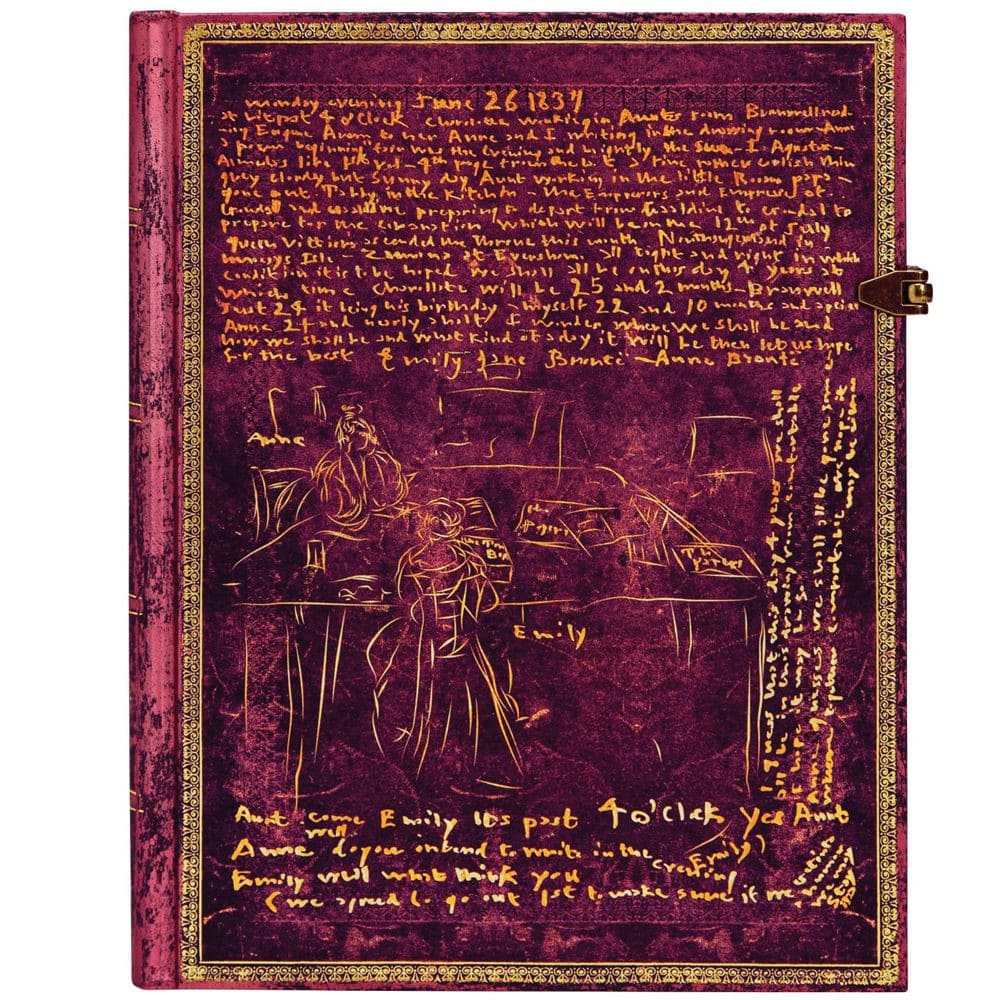 monday evening June 26 1837
a bit past 4 o'Clock Charlotte working in Aunts room Branwell read
ing Eugene Aram to her Anne and I writing in the drawing room Anne
a poem beginning fair was the evening and brightly the sun – I Agustus
Almedas life 1st vol – 4th page from the last a fine rather coolish thin
grey cloudy but Sunny day Aunt working in the little Room papa
gone out Tabby in the Kitchin – the Emperors and Empresses of
Gondal and Gaaldine preparing to depart from Gaaldine to Gondal to
prepare for the coronation which will be on the 12th of July
queen Vittiora ascended the throne this month Northangerland in
monceys Isle – Zamorna at Eversham all tight and right in which
condition it is to be hoped we shall all be on this day 4 years at
which time Charollote will be 25 and 2 months – Branwell
just 24 it being his birthday – myself 22 and 10 months and a piece
Anne 21 and nearly a half I wonder where we shall be and
how we shall be and what kind of a day it will be then let us hope
for the best Emily Jane Brontë – Anne Brontë
Anne
the papers
The Tin Box
The papers
Emily
I guess that this day 4 years we shall
all be in this drawing room comfortable
I hope it may be so
Anne guesses we shall all be gone somewhere
together comfortable we hope it
may be
Aunt come Emily Its past 4 o'Clock yes Aunt
Anne well do you intend to write in the evening Emily
Emily well what think you
(we agreed to go out 1st to make sure if we